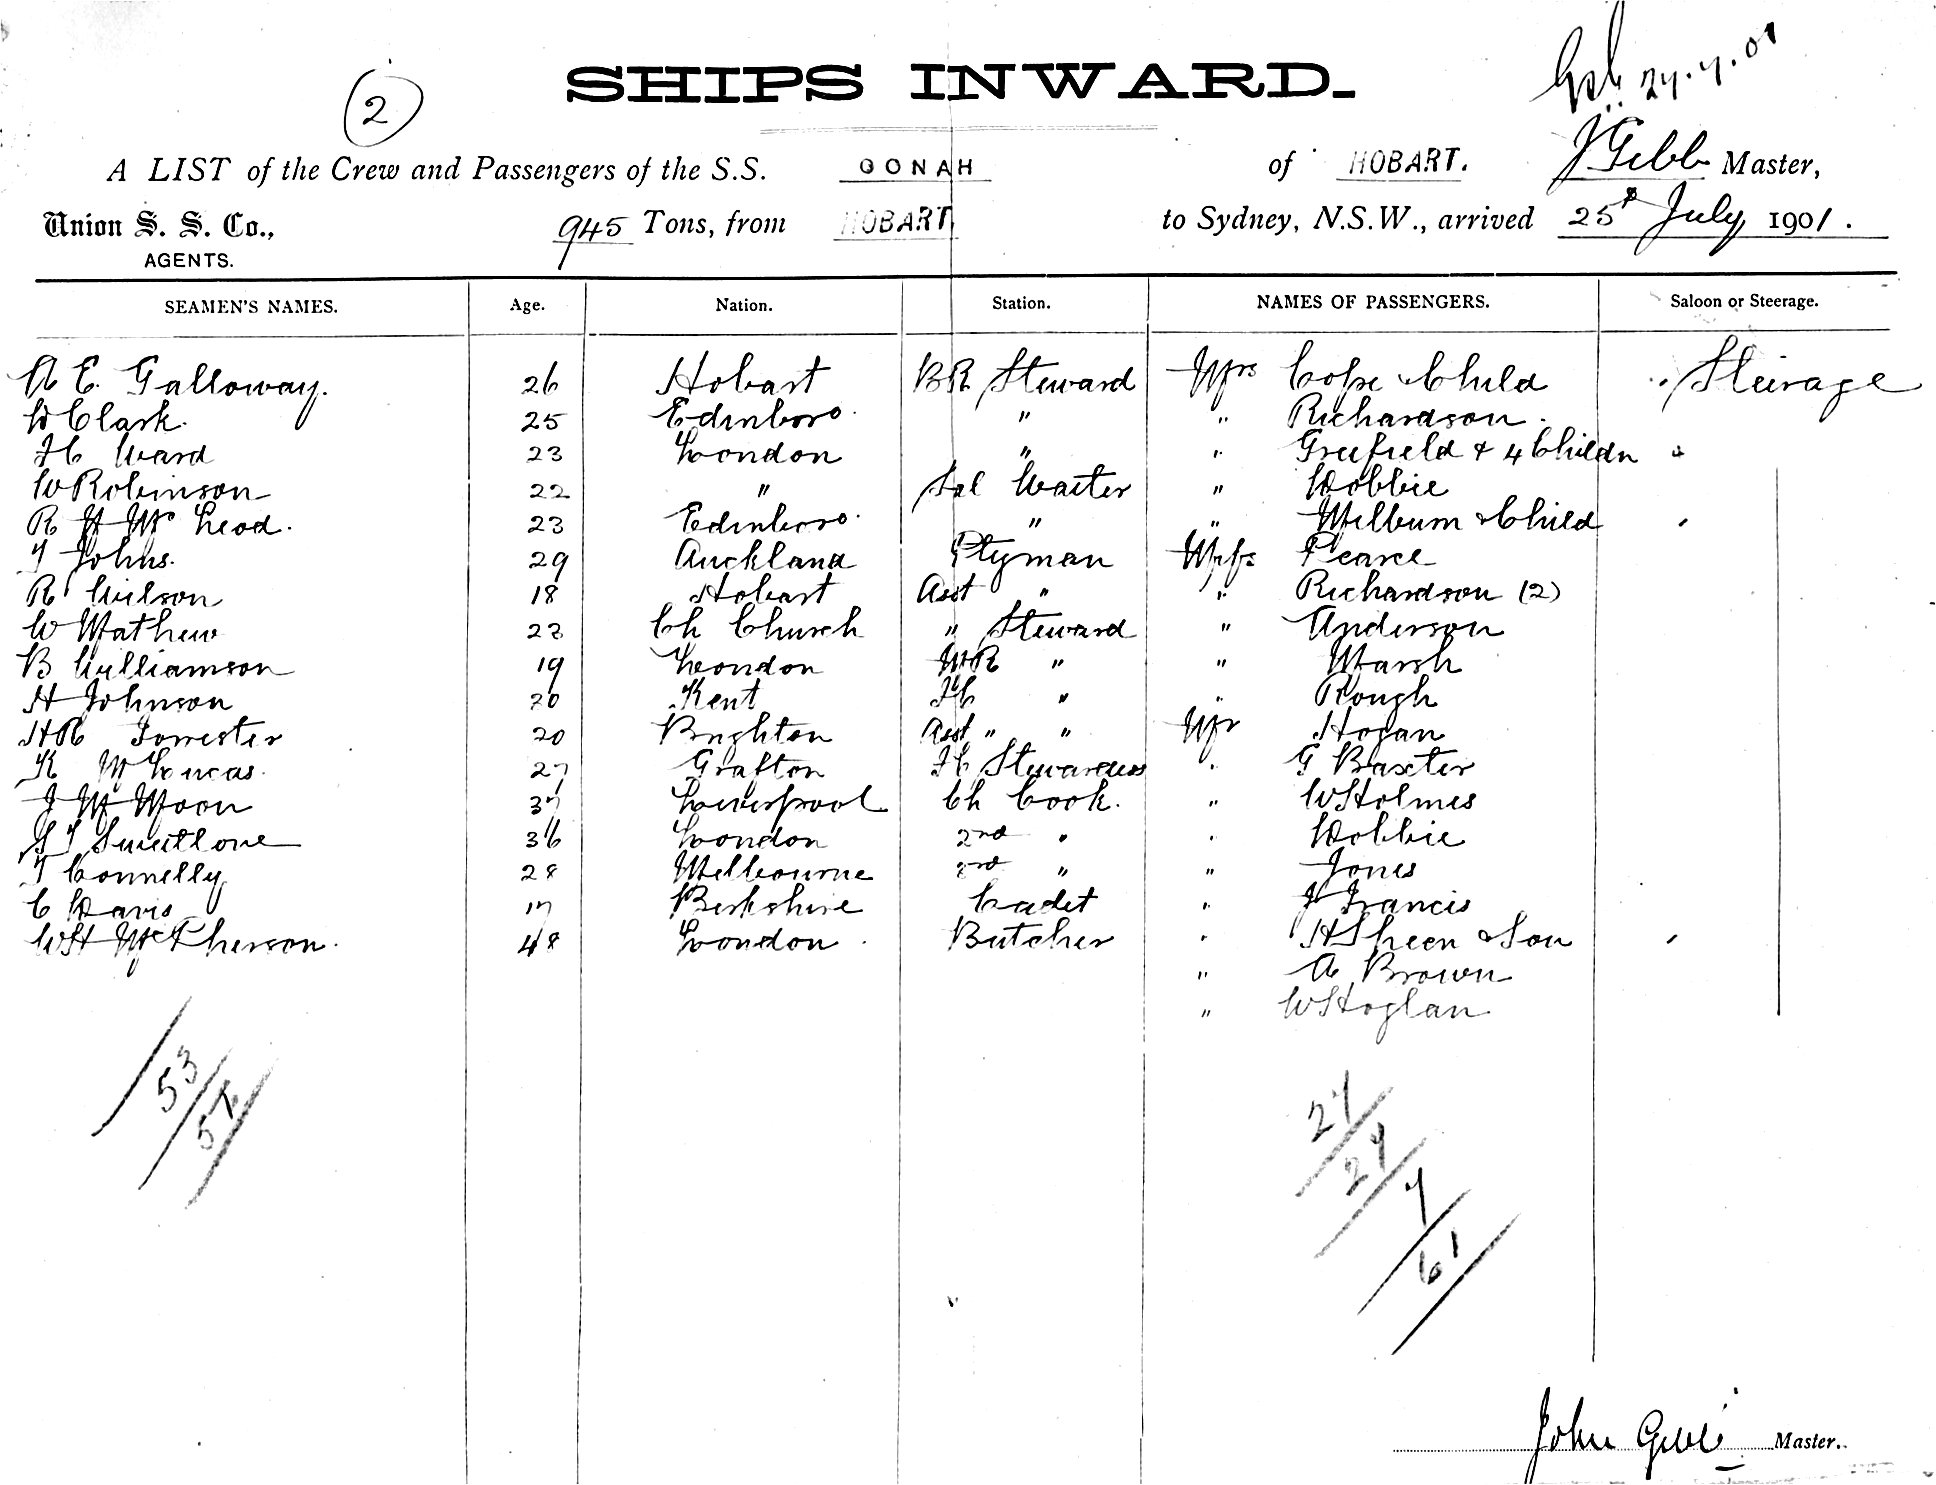 2
SHIPS INWARD.
24.7.01
A LIST of the Crew and Passengers of the S.S. OONAH of HOBART. J Gibb Master,
Union S. S. Co., 945 Tons, from HOBART to Sydney, N.S.W., arrived 25th July 1901.
AGENTS.
SEAMEN'S NAMES. Age. Nation. Station. NAMES OF PASSENGERS. Saloon or Steerage.
A E Galloway. 26 Hobart BR Steward Mrs Cope & Child Steirage
D Clark. 25 Edinboro. " " Richardson.
H Ward 23 London " " Greefield & 4 Childn "
W Robinson 22 " Sal Waiter " Dobbie
R H McLeod. 23 Edinboro. " " Milburn & Child "
T Johns. 29 Auckland Ptyman Miss Pearce
R Wilson 18 Hobart Asst " " Richardson (2)
W Mathew 23 Ch Church " Steward " Anderson
B Williamson 19 London MR " " Marsh
H Johnson 20 Kent FC " " Rough
HR Forrester 20 Brighton Asst " " Mr Hogan
K McLucas. 27 Grafton FC Stewardess " G Baxter
J M Moon 37 Liverpool Ch Cook. " W Holmes
Sweetlove 36 London 2nd " " Dobbie
T Connelly 28 Melbourne 3rd " " Jones
C Davis 17 Berkshire Cadet " J Francis
WH McPherson. 48 London. Butcher " H Sheen & Son "
" A Brown
" W Hoglan
53
27
27
7
61
John Gibb Master.